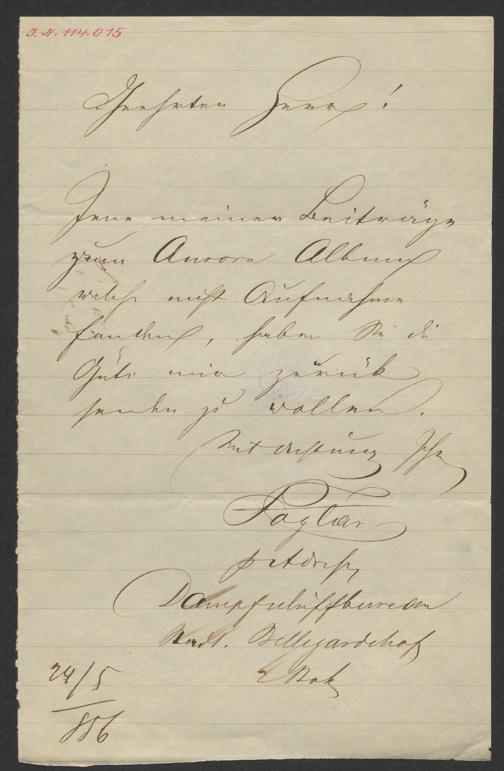 I. N. 114.015
Geehrter Herr!
Jene meiner Beiträge
zum Aurora Album
welche nicht Aufnahme
fanden, haben Sie die
Güte mir zurück
senden zu wollen.
Mit Achtung Ihr
Foglar
p Adresse
Dampfschiffbureau
Stadt. Bellegardehof
2. Stok
24/5
856